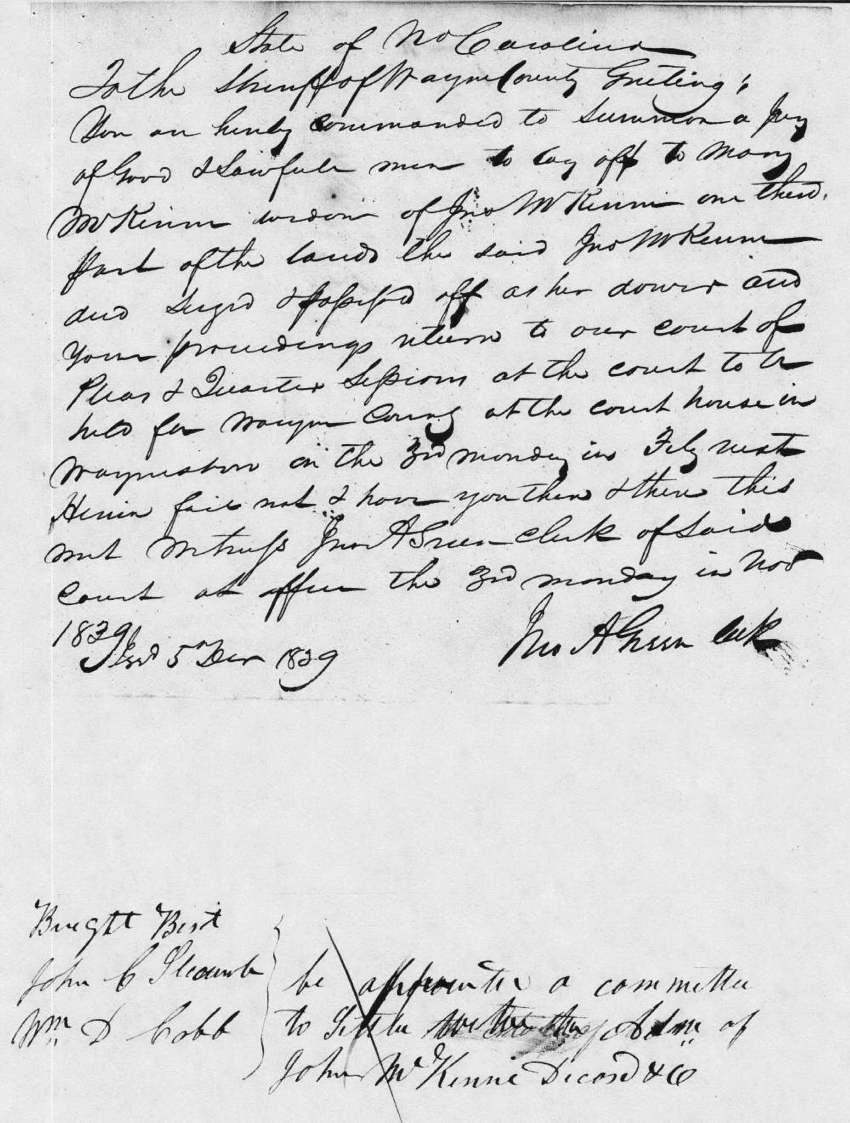 State of No Carolina
To the Sheriff of Wayne County Greeting;
You are hereby commanded to Summon a Jury
of Good & Lawfull men to lay off to Mary
McKinne widow of Jno McKinne one third
Part of the lands the said Jno McKinne
died Seized & possessed off as her dower and
your proceedings return to our court of
Pleas & Quarter Sessions at the court to be
held for Wayne County at the court house in
Waynesboro on the 3rd monday in Feby next
Herein fail not & have you then & there this
writ Witness Jno A Green clerk of Said
court at office the 3rd monday in Nov
1839
Issd 5th Decr 1839
Jno A Green Clk
Bright Best
John C Slocumb
Wm D Cobb
be appointed a committee
to Settle with the Adm of
John McKinnie Decasd &C